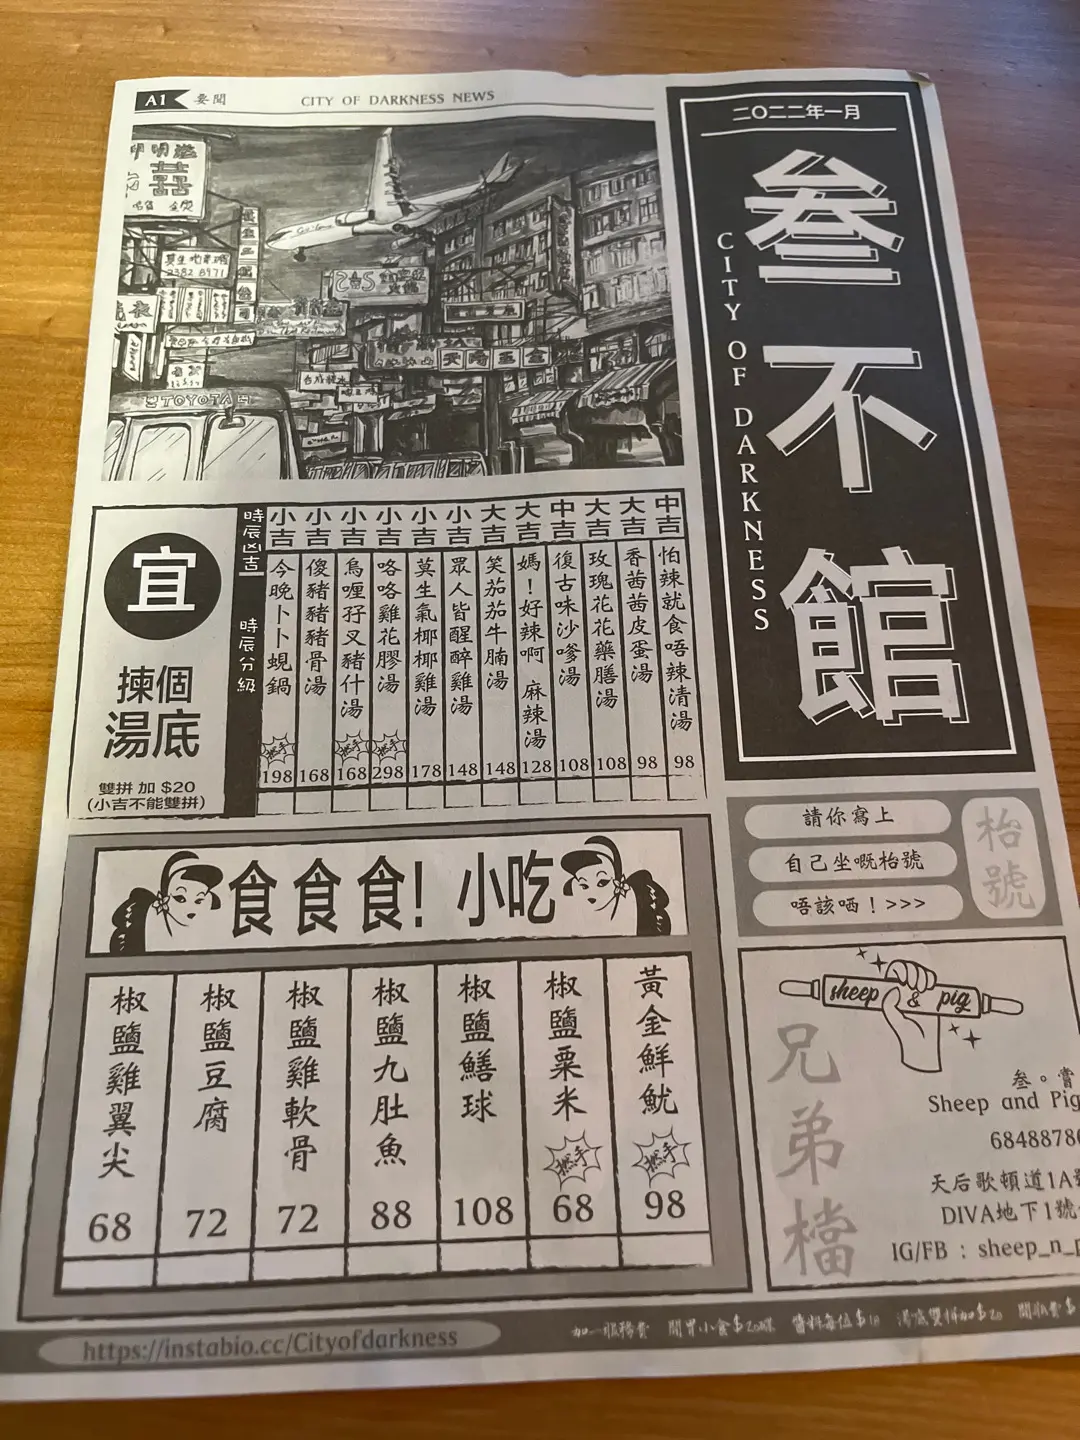 A1 要聞
CITY OF DARKNESS NEWS
二〇二二年一月
叁不館
CITY OF DARKNESS
2382 8971
TOYOTA
宜
揀個
湯底
雙拼 加 $20
(小吉不能雙拼)
時辰凶吉
時辰分級
中吉 怕辣就食唔辣清湯 98
大吉 香茜茜皮蛋湯 98
大吉 玫瑰花花藥膳湯 108
中吉 復古味沙嗲湯 108
大吉 媽！好辣啊 麻辣湯 128
大吉 笑茄茄牛腩湯 148
小吉 眾人皆醒醉雞湯 148
小吉 莫生氣椰椰雞湯 178
小吉 咯咯雞花膠湯 推手 298
小吉 烏喱孖叉豬什湯 推手 168
小吉 傻豬豬豬骨湯 168
小吉 今晚卜卜蜆鍋 推手 198
請你寫上
自己坐嘅枱號
唔該哂！>>>
枱號
食食食！小吃
黃金鮮魷 推手 98
椒鹽粟米 推手 68
椒鹽鱔球 108
椒鹽九肚魚 88
椒鹽雞軟骨 72
椒鹽豆腐 72
椒鹽雞翼尖 68
sheep & pig
兄弟檔
叁。嘗
Sheep and Pig
6848878
天后歌頓道1A號
DIVA地下1號
IG/FB : sheep_n_p
https://instabio.cc/Cityofdarkness
加一服務費 開胃小食$20碟 醬料每位$10 湯底雙拼加$20 開瓶費$